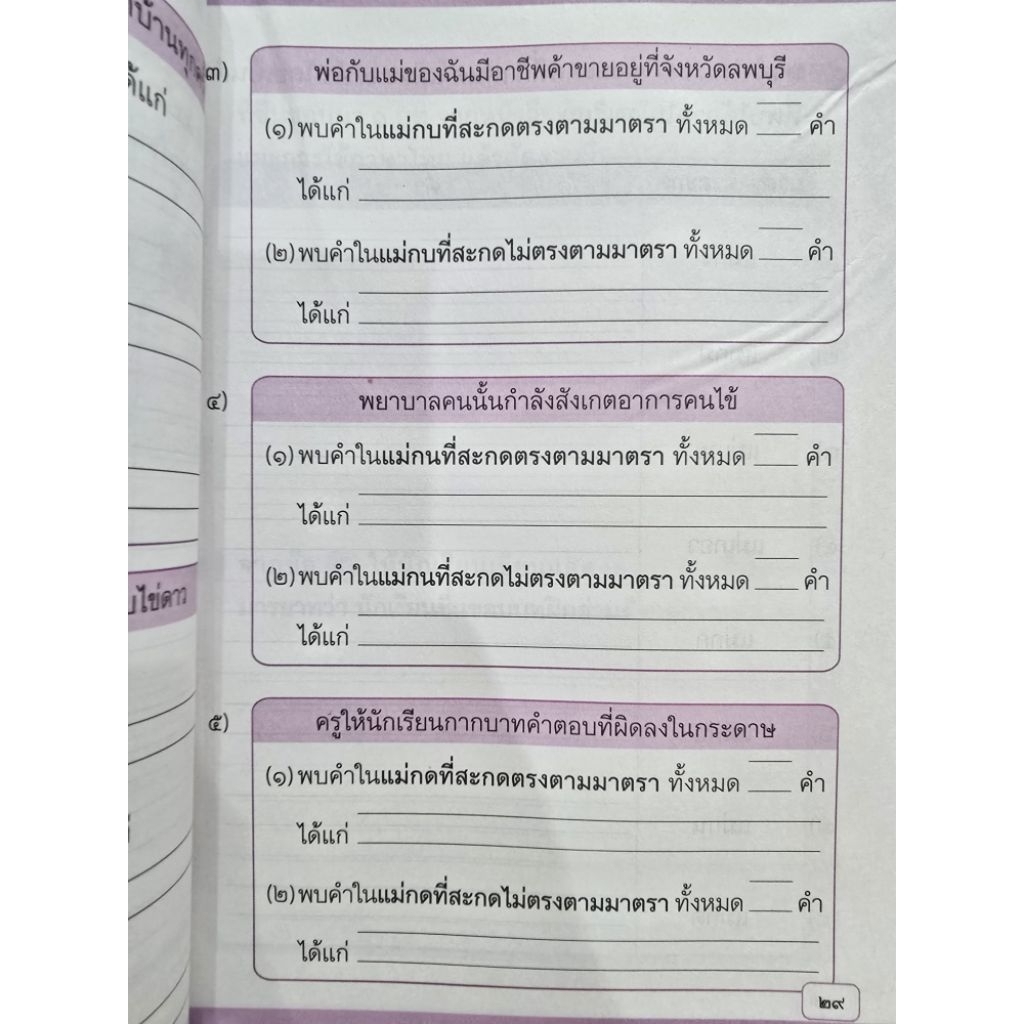 บ้านทุก
ได้แก่
ไข่ดาว
๓)
พ่อกับแม่ของฉันมีอาชีพค้าขายอยู่ที่จังหวัดลพบุรี
(๑) พบคำในแม่กบที่สะกดตรงตามมาตรา ทั้งหมด ____ คำ
ได้แก่
(๒) พบคำในแม่กบที่สะกดไม่ตรงตามมาตรา ทั้งหมด ____ คำ
ได้แก่
๔)
พยาบาลคนนั้นกำลังสังเกตอาการคนไข้
(๑) พบคำในแม่กนที่สะกดตรงตามมาตรา ทั้งหมด ____ คำ
ได้แก่
(๒) พบคำในแม่กนที่สะกดไม่ตรงตามมาตรา ทั้งหมด ____ คำ
ได้แก่
๕)
ครูให้นักเรียนกากบาทคำตอบที่ผิดลงในกระดาษ
(๑) พบคำในแม่กดที่สะกดตรงตามมาตรา ทั้งหมด ____ คำ
ได้แก่
(๒) พบคำในแม่กดที่สะกดไม่ตรงตามมาตรา ทั้งหมด ____ คำ
ได้แก่
๒๙